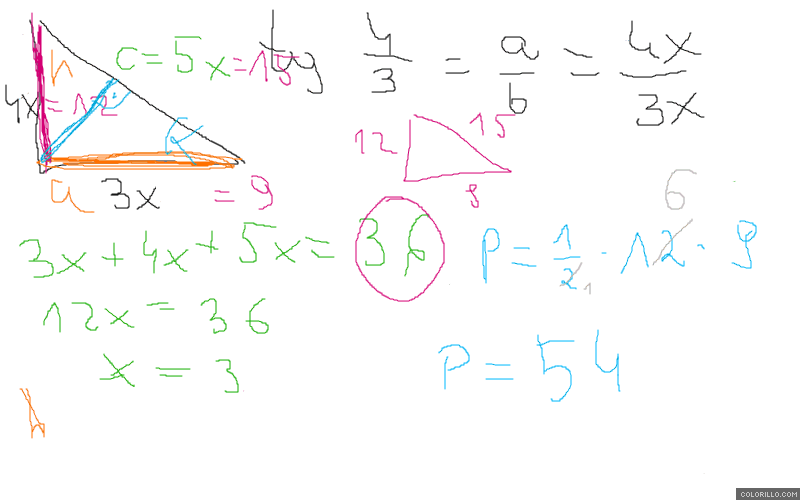 c = 5x = 15
h
4x = 12
a 3x = 9
tg 4/3 = a/b = 4x/3x
12 15
9
3x + 4x + 5x = 36
12x = 36
x = 3
h
6
P = 1/2 · 12 · 9
1
P = 54
COLORILLO.COM